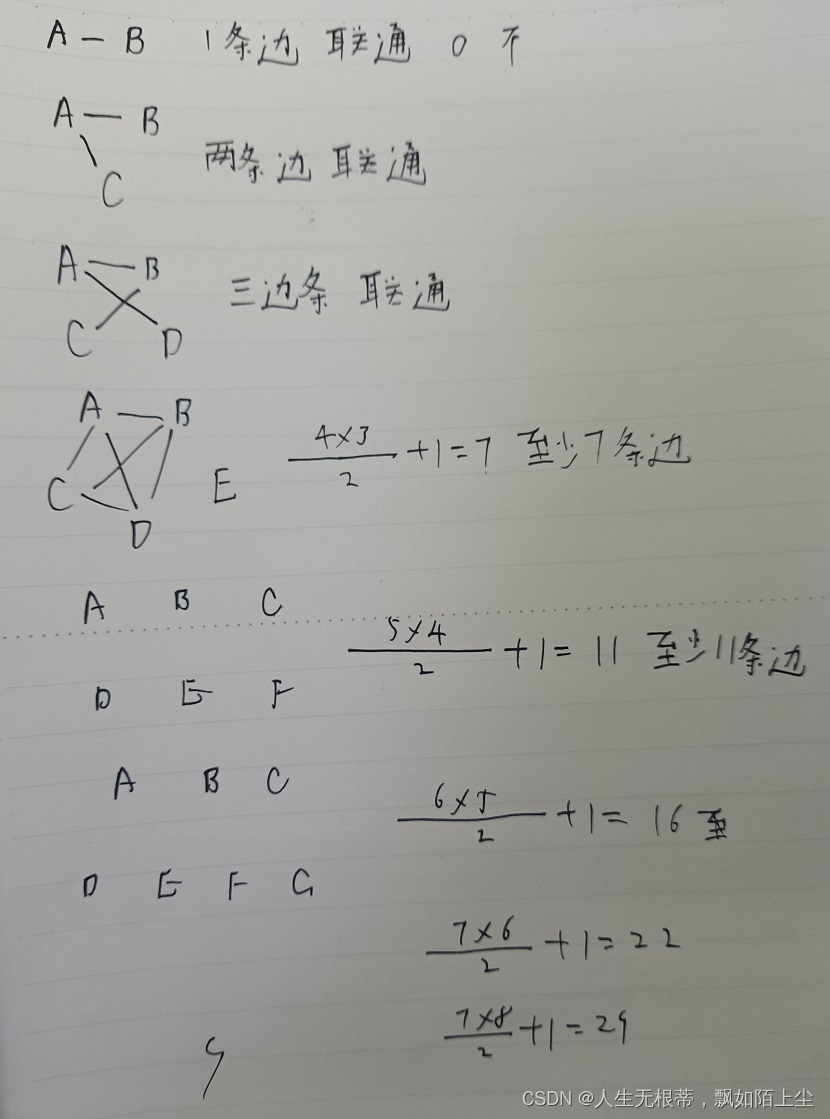 A — B 1条边 联通 0 不
A — B
C
两条边 联通
A — B
C D
三边条 联通
A — B
C D E
4×3/2 +1=7 至少7条边
A B C
D E F
5×4/2 +1= 11 至少11条边
A B C
D E F G
6×5/2 +1= 16 至
7×6/2 +1=22
7×8/2 +1=29
9
CSDN @人生无根蒂，飘如陌上尘